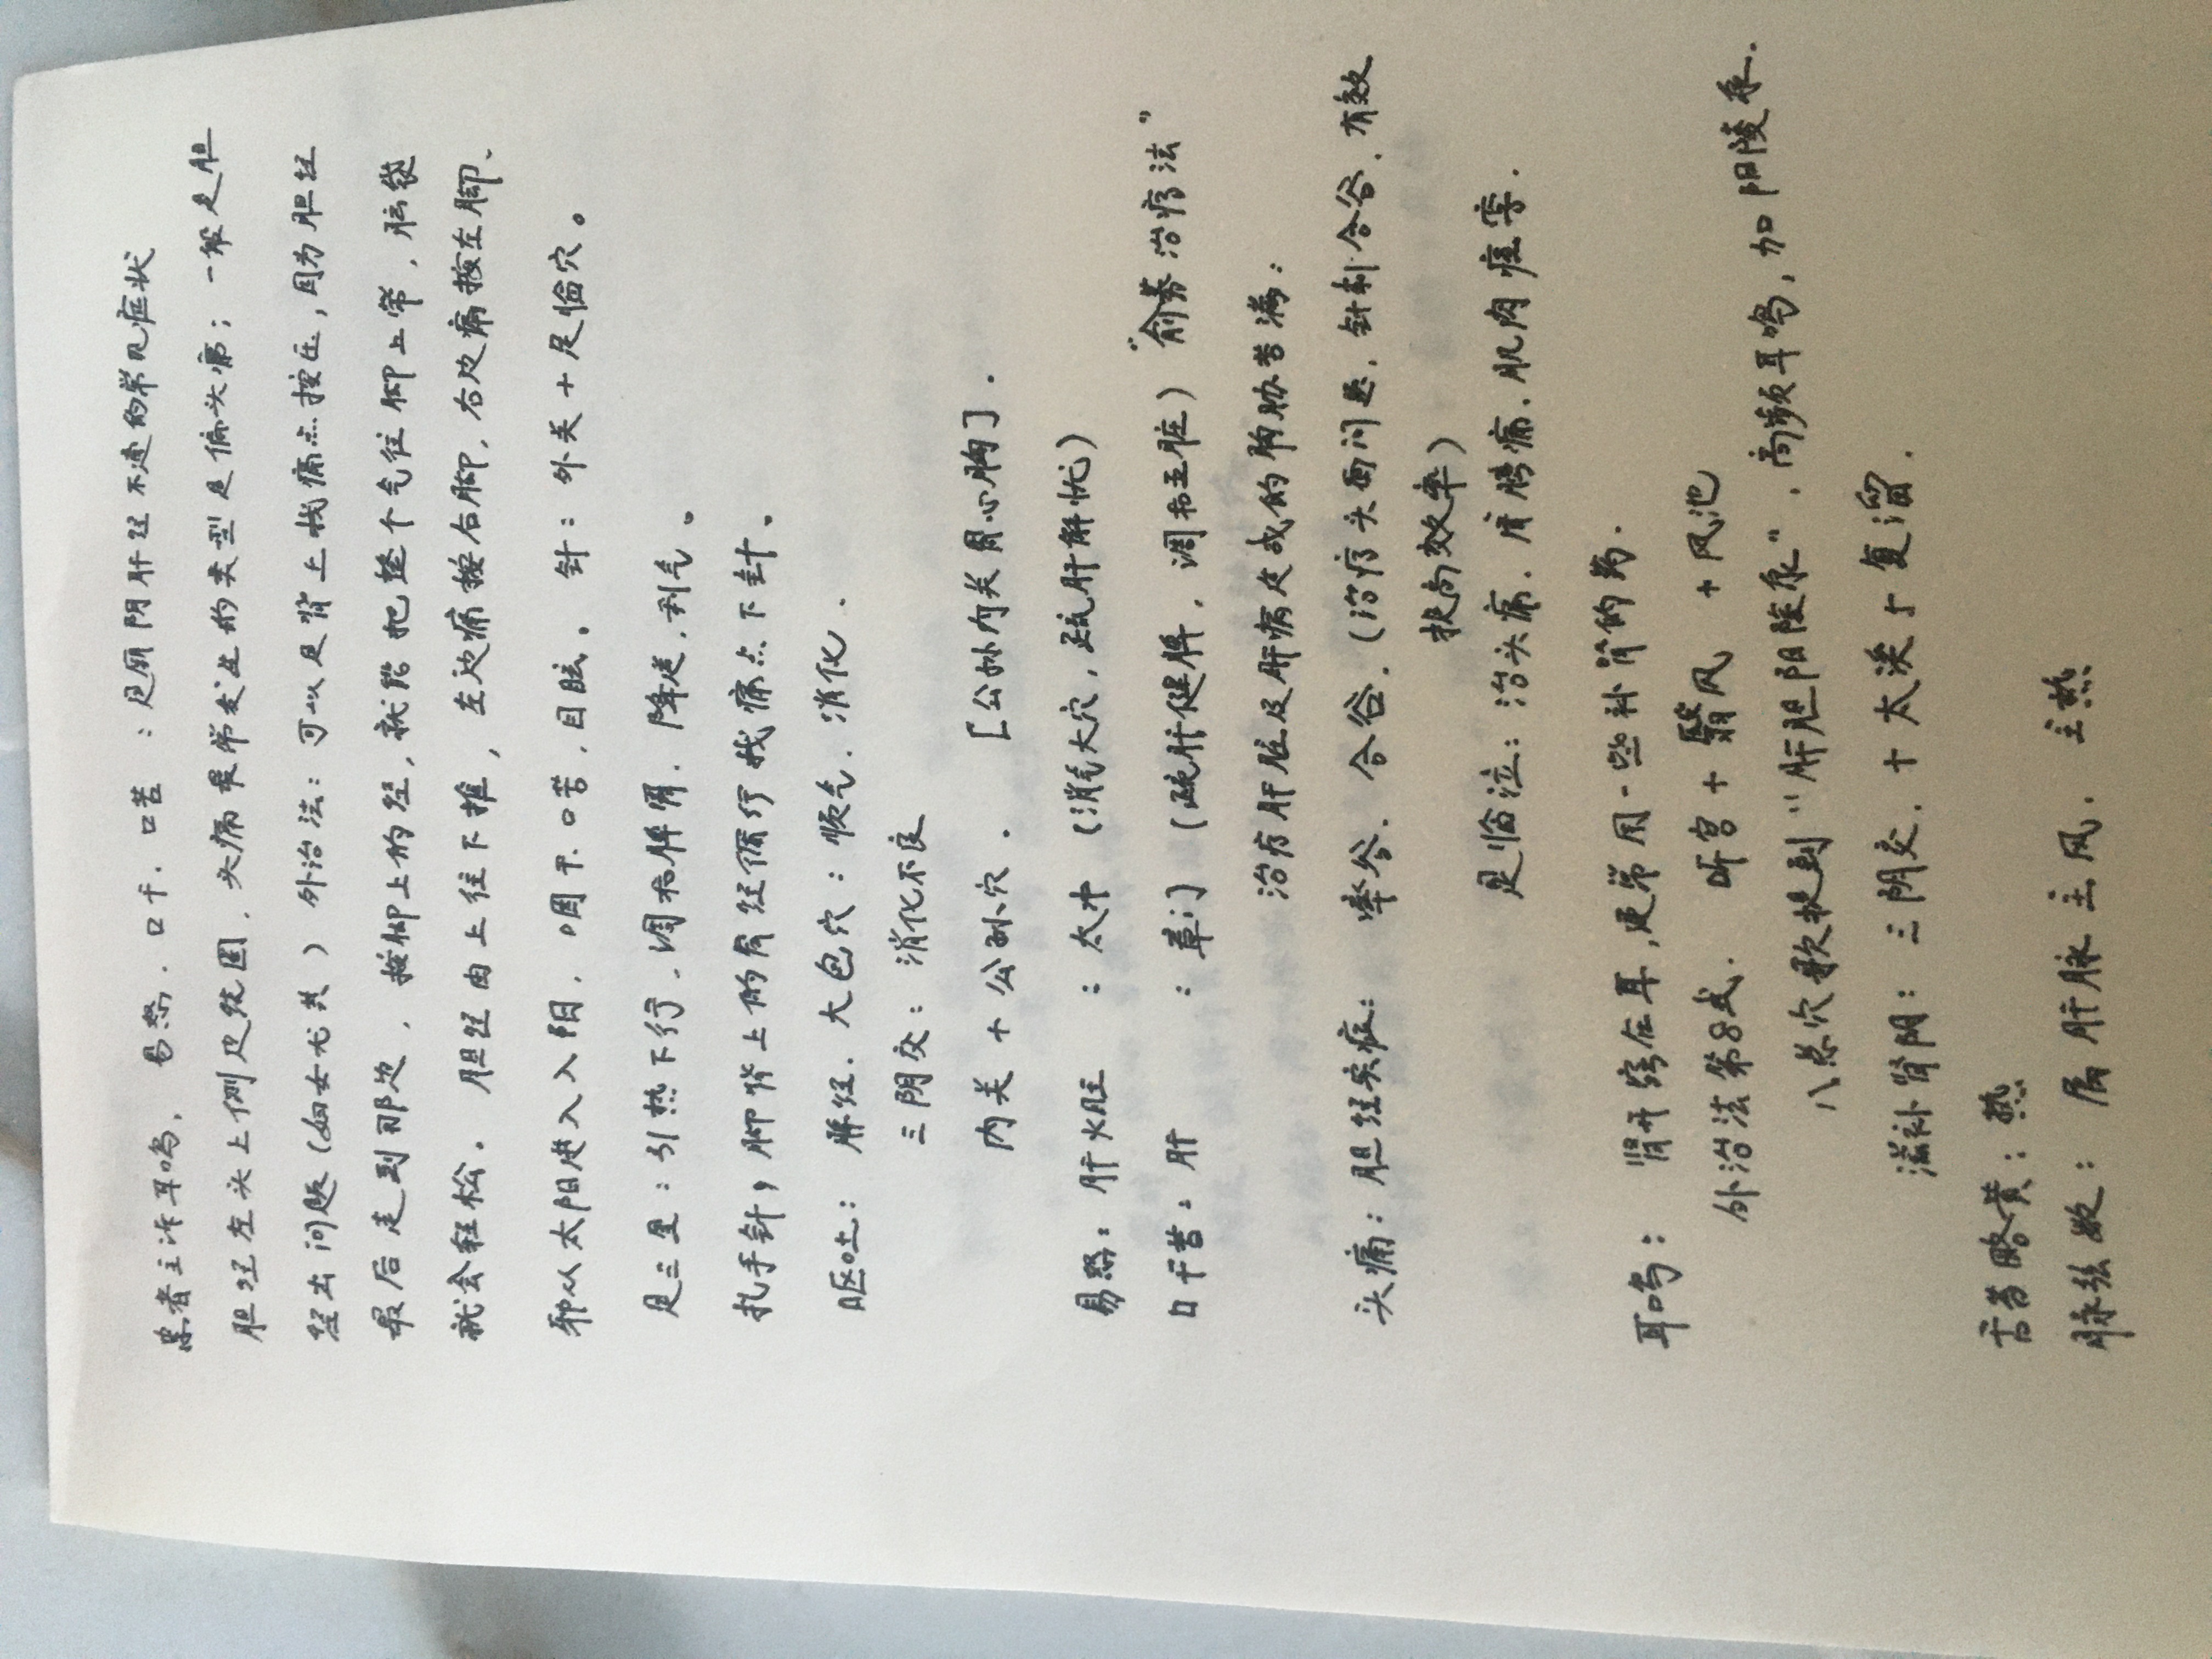 患者主诉耳鸣，易怒．口干．口苦：足厥阴肝经不速的常见症状
胆经左头上侧及绕圈．头痛最常发生的类型是偏头痛；一般是胆
经出问题（妇女尤其）外治法：可以足背上找痛点按压，因为胆经
最后走到那边，按脚上的经，就能把整个气往脚上带，脑袋
就会轻松。胆经由上往下推，左边痛按右脚，右边痛按左脚、
邪从太阳进入入阳．咽干．口苦．目眩。针：外关＋足临穴。
足三里：引热下行．调和脾胃．降逆．利气。
扎手针，脚背上的胃经循行找痛点下针．
呕吐：脾经．大包穴：顺气．消化．
三阴交：消化不良
内关＋公孙穴．［公孙内关胃心胸］．
易怒：肝火旺：太冲（消气大穴，疏肝解忧）
口干苦：肝：章门（疏肝健脾．调和五脏）“俞募治疗法”
治疗肝脏及肝病皮或的胸胁苦满：
头痛：胆经疾症：率谷．合谷．（治疗头面问题．针刺合谷．有效
提高效率）
足临泣：治头痛．肩膀痛．肌肉痉挛．
耳鸣：肾开窍在耳，通常用一些补肾的药．
外治法第8式．听宫＋翳风＋风池
八总穴歌提到“肝胆阳陵泉”．高频耳鸣，加阳陵泉．
滋补肾阴：三阴交．＋太溪＋复溜．
舌苔略黄：热
脉弦数：属肝脉主风．主热